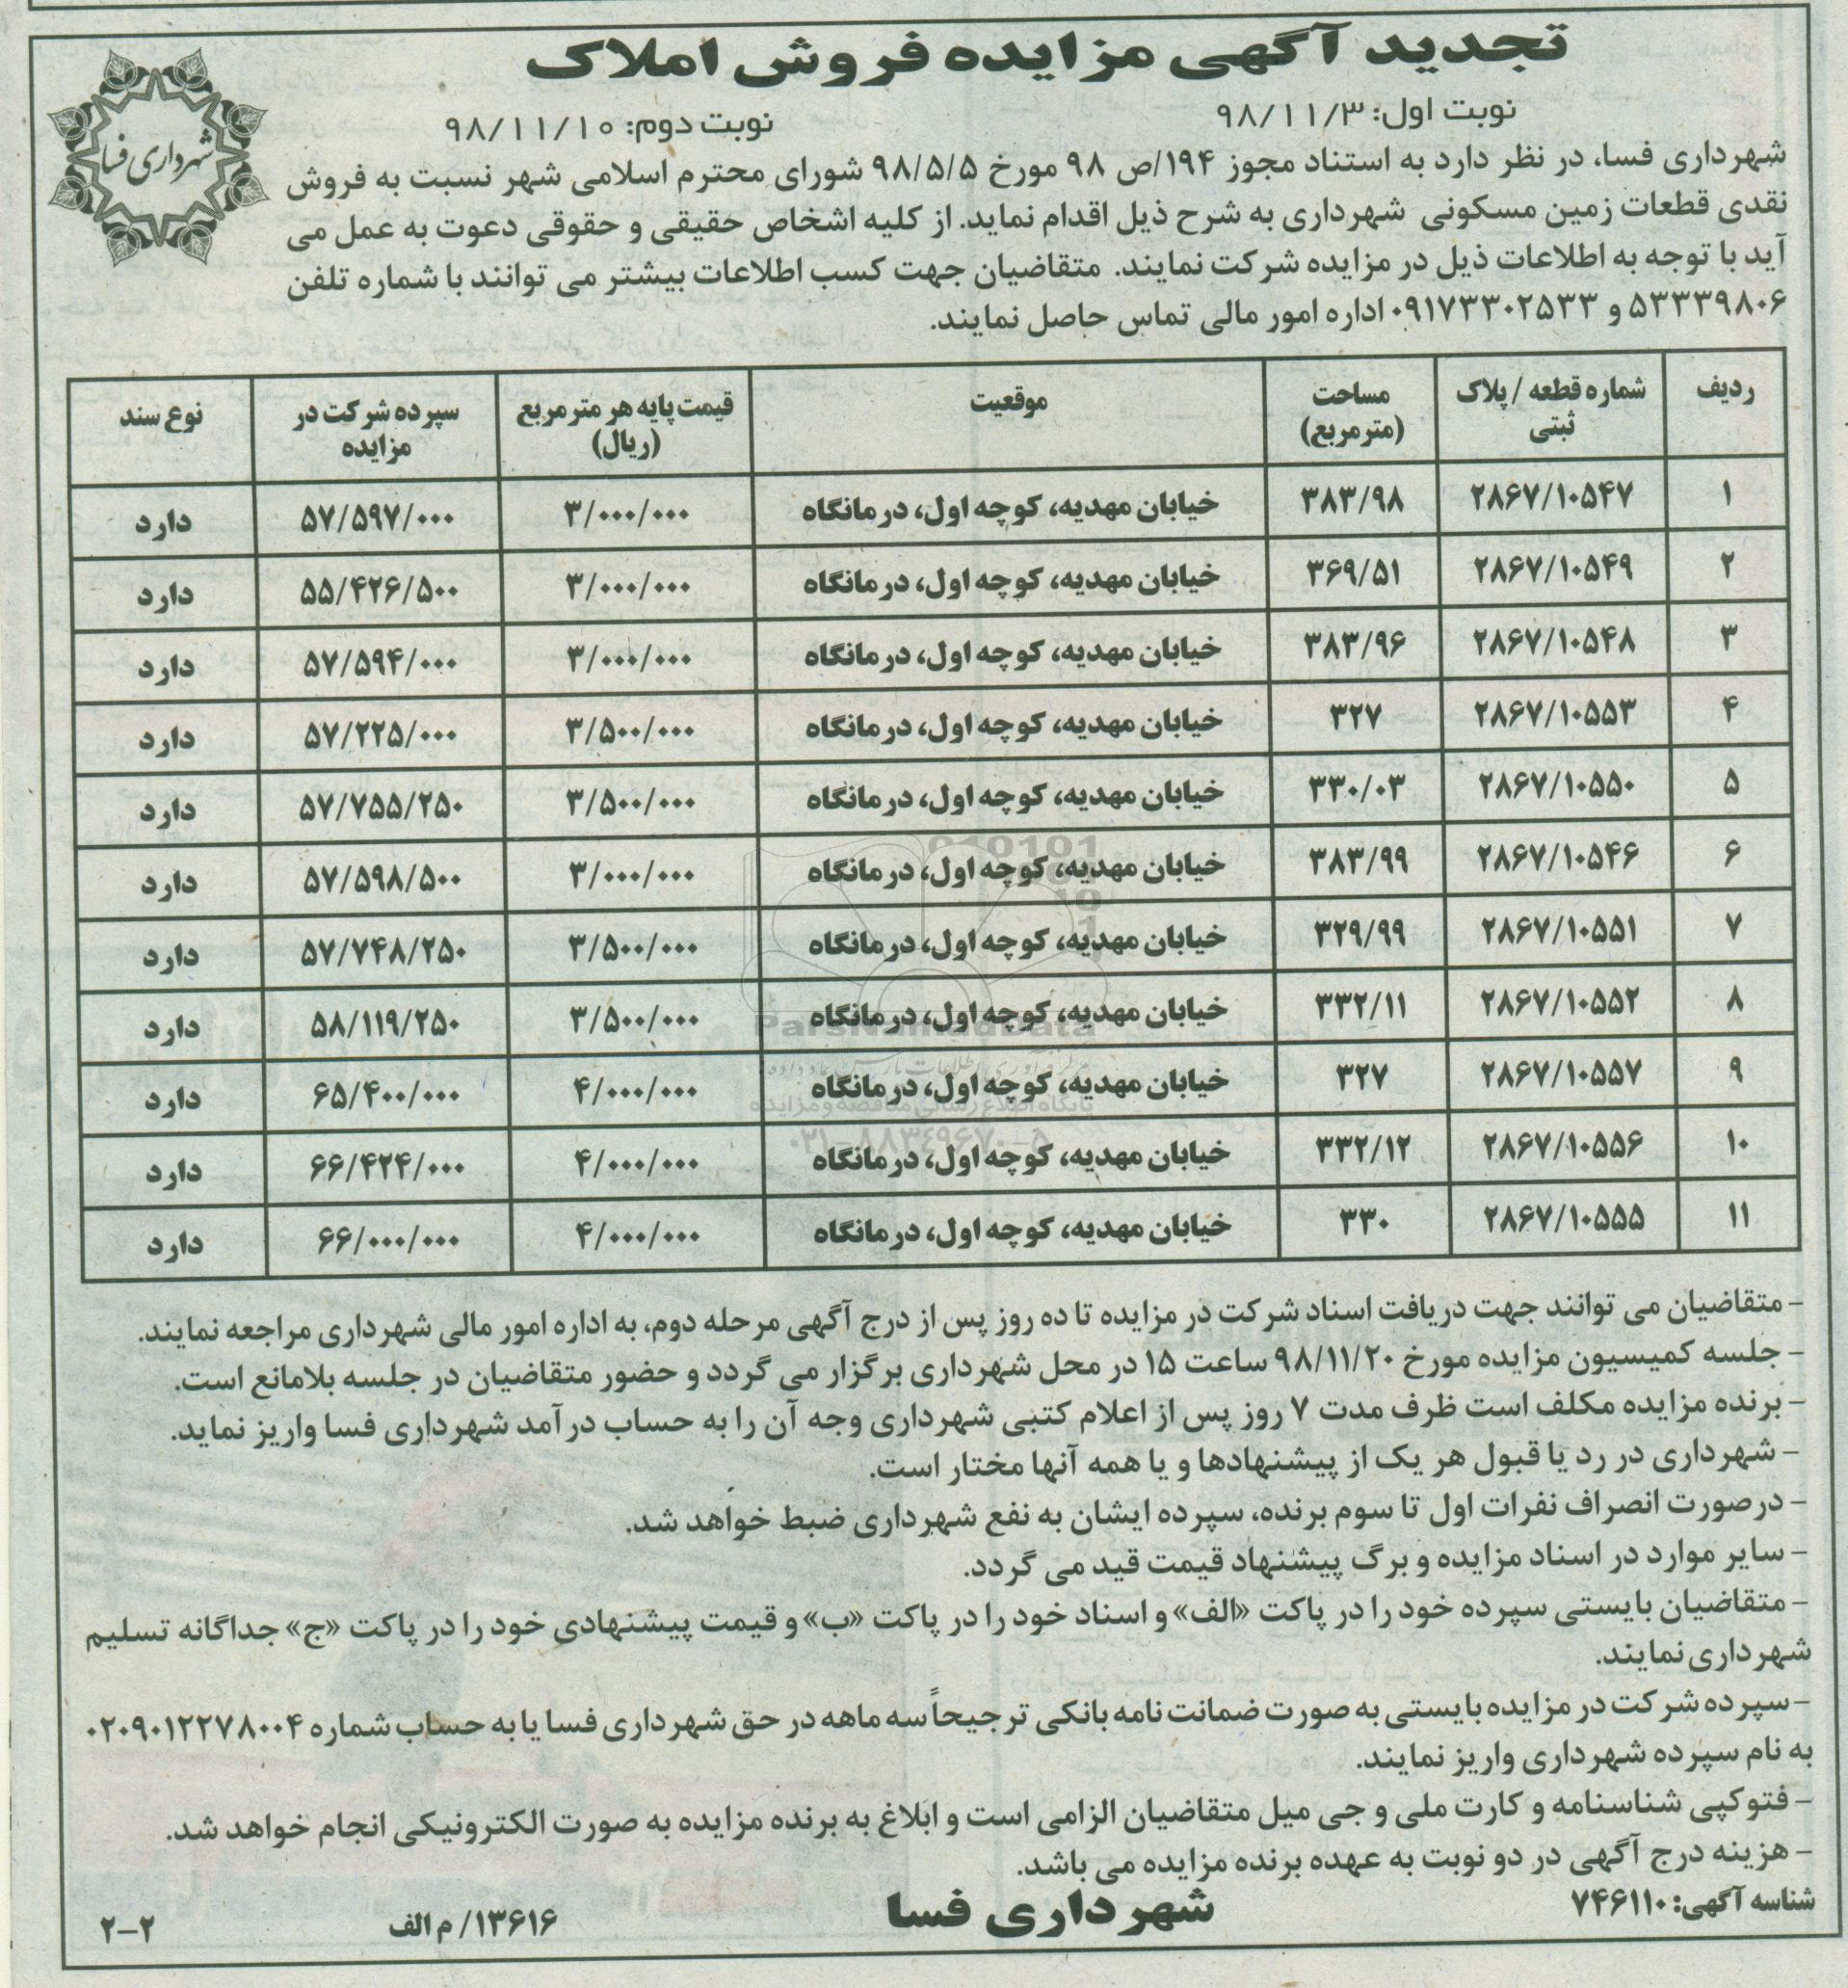 تجدید آگهی مزایده فروش املاک
نوبت اول: ۹۸/۱۱/۳
نوبت دوم: ۹۸/۱۱/۱۰
شهرداری فسا
شهرداری فسا، در نظر دارد به استناد مجوز ۱۹۴/ص ۹۸ مورخ ۹۸/۵/۵ شورای محترم اسلامی شهر نسبت به فروش
نقدی قطعات زمین مسکونی شهرداری به شرح ذیل اقدام نماید. از کلیه اشخاص حقیقی و حقوقی دعوت به عمل می
آید با توجه به اطلاعات ذیل در مزایده شرکت نمایند. متقاضیان جهت کسب اطلاعات بیشتر می توانند با شماره تلفن
۵۳۳۳۹۸۰۶ و ۰۹۱۷۳۳۰۲۵۳۳ اداره امور مالی تماس حاصل نمایند.
ردیف | شماره قطعه / پلاک ثبتی | مساحت (مترمربع) | موقعیت | قیمت پایه هر مترمربع (ریال) | سپرده شرکت در مزایده | نوع سند
۱ | ۲۸۶۷/۱۰۵۴۷ | ۳۸۳/۹۸ | خیابان مهدیه، کوچه اول، درمانگاه | ۳/۰۰۰/۰۰۰ | ۵۷/۵۹۷/۰۰۰ | دارد
۲ | ۲۸۶۷/۱۰۵۴۹ | ۳۶۹/۵۱ | خیابان مهدیه، کوچه اول، درمانگاه | ۳/۰۰۰/۰۰۰ | ۵۵/۴۲۶/۵۰۰ | دارد
۳ | ۲۸۶۷/۱۰۵۴۸ | ۳۸۳/۹۶ | خیابان مهدیه، کوچه اول، درمانگاه | ۳/۰۰۰/۰۰۰ | ۵۷/۵۹۴/۰۰۰ | دارد
۴ | ۲۸۶۷/۱۰۵۵۳ | ۳۲۷ | خیابان مهدیه، کوچه اول، درمانگاه | ۳/۵۰۰/۰۰۰ | ۵۷/۲۲۵/۰۰۰ | دارد
۵ | ۲۸۶۷/۱۰۵۵۰ | ۳۳۰/۰۳ | خیابان مهدیه، کوچه اول، درمانگاه | ۳/۵۰۰/۰۰۰ | ۵۷/۷۵۵/۲۵۰ | دارد
۶ | ۲۸۶۷/۱۰۵۴۶ | ۳۸۳/۹۹ | خیابان مهدیه، کوچه اول، درمانگاه | ۳/۰۰۰/۰۰۰ | ۵۷/۵۹۸/۵۰۰ | دارد
۷ | ۲۸۶۷/۱۰۵۵۱ | ۳۲۹/۹۹ | خیابان مهدیه، کوچه اول، درمانگاه | ۳/۵۰۰/۰۰۰ | ۵۷/۷۴۸/۲۵۰ | دارد
۸ | ۲۸۶۷/۱۰۵۵۲ | ۳۳۲/۱۱ | خیابان مهدیه، کوچه اول، درمانگاه | ۳/۵۰۰/۰۰۰ | ۵۸/۱۱۹/۲۵۰ | دارد
۹ | ۲۸۶۷/۱۰۵۵۷ | ۳۲۷ | خیابان مهدیه، کوچه اول، درمانگاه | ۴/۰۰۰/۰۰۰ | ۶۵/۴۰۰/۰۰۰ | دارد
۱۰ | ۲۸۶۷/۱۰۵۵۶ | ۳۳۲/۱۲ | خیابان مهدیه، کوچه اول، درمانگاه | ۴/۰۰۰/۰۰۰ | ۶۶/۴۲۴/۰۰۰ | دارد
۱۱ | ۲۸۶۷/۱۰۵۵۵ | ۳۳۰ | خیابان مهدیه، کوچه اول، درمانگاه | ۴/۰۰۰/۰۰۰ | ۶۶/۰۰۰/۰۰۰ | دارد
ParsNamadData
پایگاه اطلاع رسانی مناقصه و مزایده
۰۲۱-۸۸۳۴۹۶۷۰-۵
- متقاضیان می توانند جهت دریافت اسناد شرکت در مزایده تا ده روز پس از درج آگهی مرحله دوم، به اداره امور مالی شهرداری مراجعه نمایند.
- جلسه کمیسیون مزایده مورخ ۹۸/۱۱/۲۰ ساعت ۱۵ در محل شهرداری برگزار می گردد و حضور متقاضیان در جلسه بلامانع است.
- برنده مزایده مکلف است ظرف مدت ۷ روز پس از اعلام کتبی شهرداری وجه آن را به حساب درآمد شهرداری فسا واریز نماید.
- شهرداری در رد یا قبول هر یک از پیشنهادها و یا همه آنها مختار است.
- درصورت انصراف نفرات اول تا سوم برنده، سپرده ایشان به نفع شهرداری ضبط خواهد شد.
- سایر موارد در اسناد مزایده و برگ پیشنهاد قیمت قید می گردد.
- متقاضیان بایستی سپرده خود را در پاکت «الف» و اسناد خود را در پاکت «ب» و قیمت پیشنهادی خود را در پاکت «ج» جداگانه تسلیم
شهرداری نمایند.
- سپرده شرکت در مزایده بایستی به صورت ضمانت نامه بانکی ترجیحاً سه ماهه در حق شهرداری فسا یا به حساب شماره ۰۲۰۹۰۱۲۲۷۸۰۰۴
به نام سپرده شهرداری واریز نمایند.
- فتوکپی شناسنامه و کارت ملی و جی میل متقاضیان الزامی است و ابلاغ به برنده مزایده به صورت الکترونیکی انجام خواهد شد.
- هزینه درج آگهی در دو نوبت به عهده برنده مزایده می باشد.
شناسه آگهی: ۷۴۶۱۱۰
شهرداری فسا
۱۳۶۱۶/ م الف
۲-۲